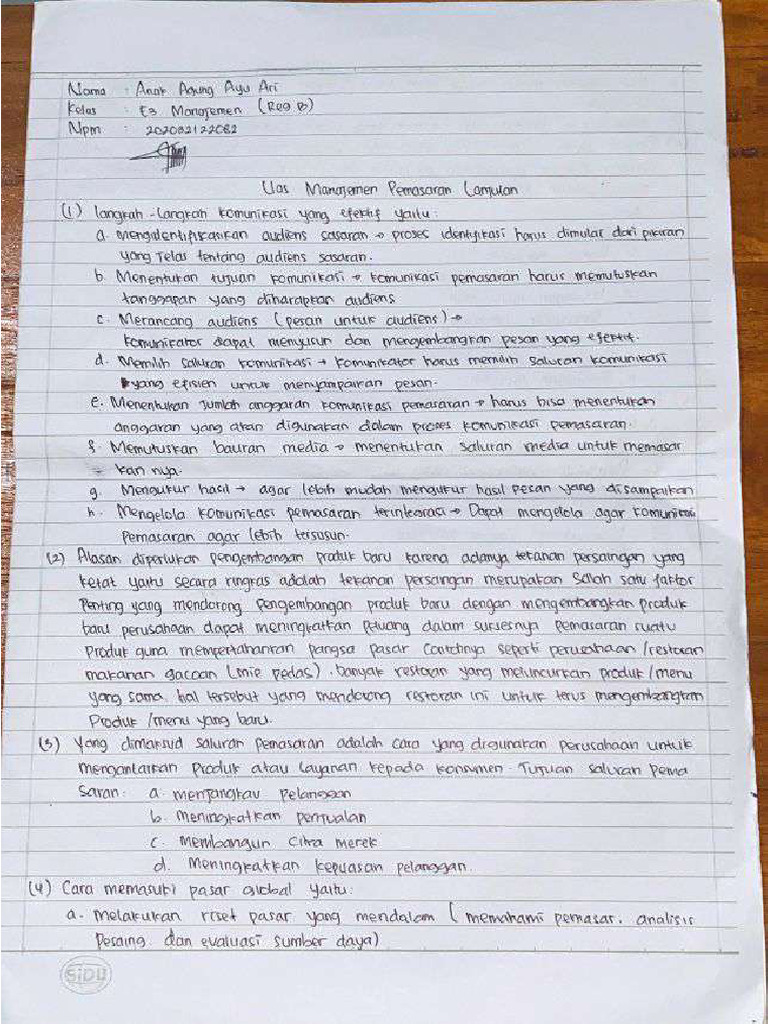 Nama : Anak Agung Ayu Ari
Kelas : E3 Manajemen (Reg B)
Npm : 202032122082
Uas Manajemen Pemasaran Lanjutan
(1) langkah-langkah komunikasi yang efektif yaitu :
a. mengidentifikasikan audiens sasaran → proses identifikasi harus dimulai dari pikiran
yang jelas tentang audiens sasaran.
b. Menentukan tujuan komunikasi → komunikasi pemasaran harus memutuskan
tanggapan yang diharapkan audiens
c. Merancang audiens (pesan untuk audiens) →
komunikator dapat menyusun dan mengembangkan pesan yang efektif.
d. Memilih saluran komunikasi → komunikator harus memilih saluran komunikasi
yang efisien untuk menyampaikan pesan.
e. Menentukan Jumlah anggaran komunikasi pemasaran → harus bisa menentukan
anggaran yang akan digunakan dalam proses komunikasi pemasaran.
f. Memutuskan bauran media → menentukan saluran media untuk memasar
kan nya.
g. Mengukur hasil → agar lebih mudah mengukur hasil pesan yang disampaikan
h. Mengelola komunikasi pemasaran terintegrasi → Dapat mengelola agar komunikasi
pemasaran agar lebih tersusun.
(2) Alasan diperlukan pengembangan produk baru karena adanya tekanan persaingan yang
ketat yaitu secara ringkas adalah tekanan persangan merupakan salah satu faktor
penting yang mendorong pengembangan produk baru dengan mengembangkan produk
baru perusahaan dapat meningkatkan peluang dalam suksesnya pemasaran suatu
produk guna mempertahankan pangsa pasar contohnya seperti perusahaan/restoran
makanan gacoan (mie pedas). banyak restoran yang meluncurkan produk/menu
yang sama. hal tersebut yang mendorong restoran ini untuk terus mengembangkan
produk/menu yang baru.
(3) Yang dimaksud saluran pemasaran adalah cara yang digunakan perusahaan untuk
mengantarkan produk atau layanan kepada konsumen. Tujuan saluran pema
saran : a. menjangkau pelanggan
b. Meningkatkan penjualan
c. Membangun citra merek
d. Meningkatkan kepuasan pelanggan.
(4) Cara memasuki pasar global yaitu :
a. melakukan riset pasar yang mendalam (memahami pemasar. analisis
pesaing dan evaluasi sumber daya)
SiDU